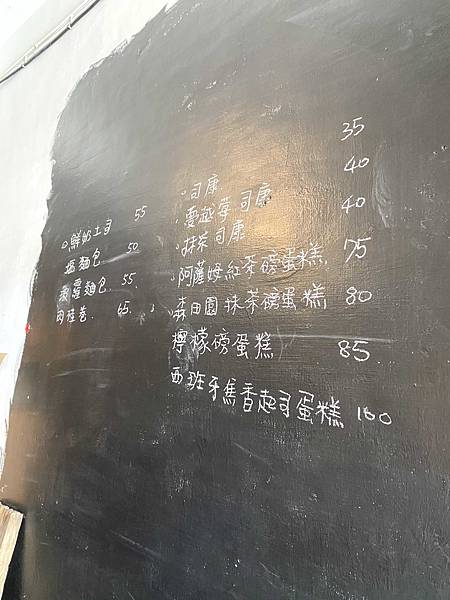 鮮奶土司 55
麵包 50
麵包 55
肉桂卷 65
司康 35
蔓越莓司康 40
抹茶司康 40
阿薩姆紅茶磅蛋糕 75
森田園抹茶磅蛋糕 80
檸檬磅蛋糕 85
西班牙焦香起司蛋糕 160